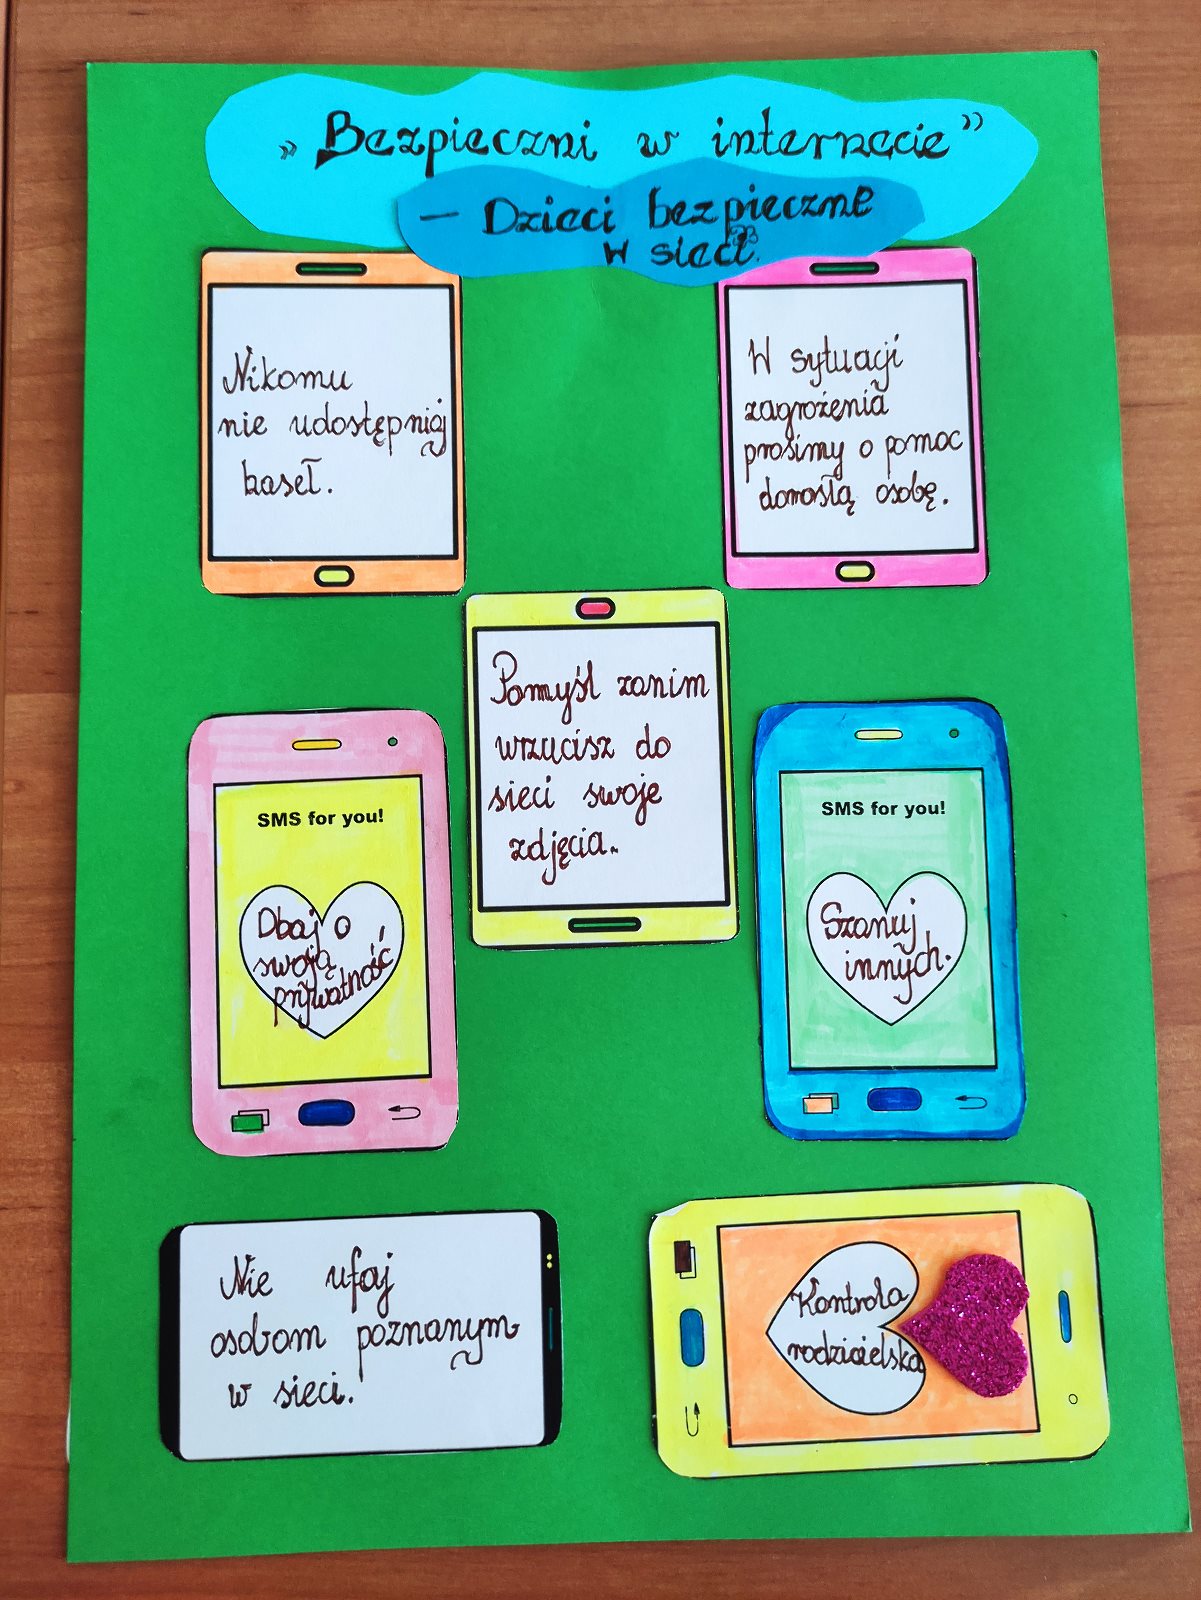 „Bezpieczni w internecie”
– Dzieci bezpieczne
w sieci.
Nikomu
nie udostępniaj
haseł.
W sytuacji
zagrożenia
prosimy o pomoc
dorosłą osobę.
Pomyśl zanim
wrzucisz do
sieci swoje
zdjęcia.
SMS for you!
Dbaj o
swoją
prywatność
SMS for you!
Szanuj
innych.
Nie ufaj
osobom poznanym
w sieci.
Kontrola
rodzicielska